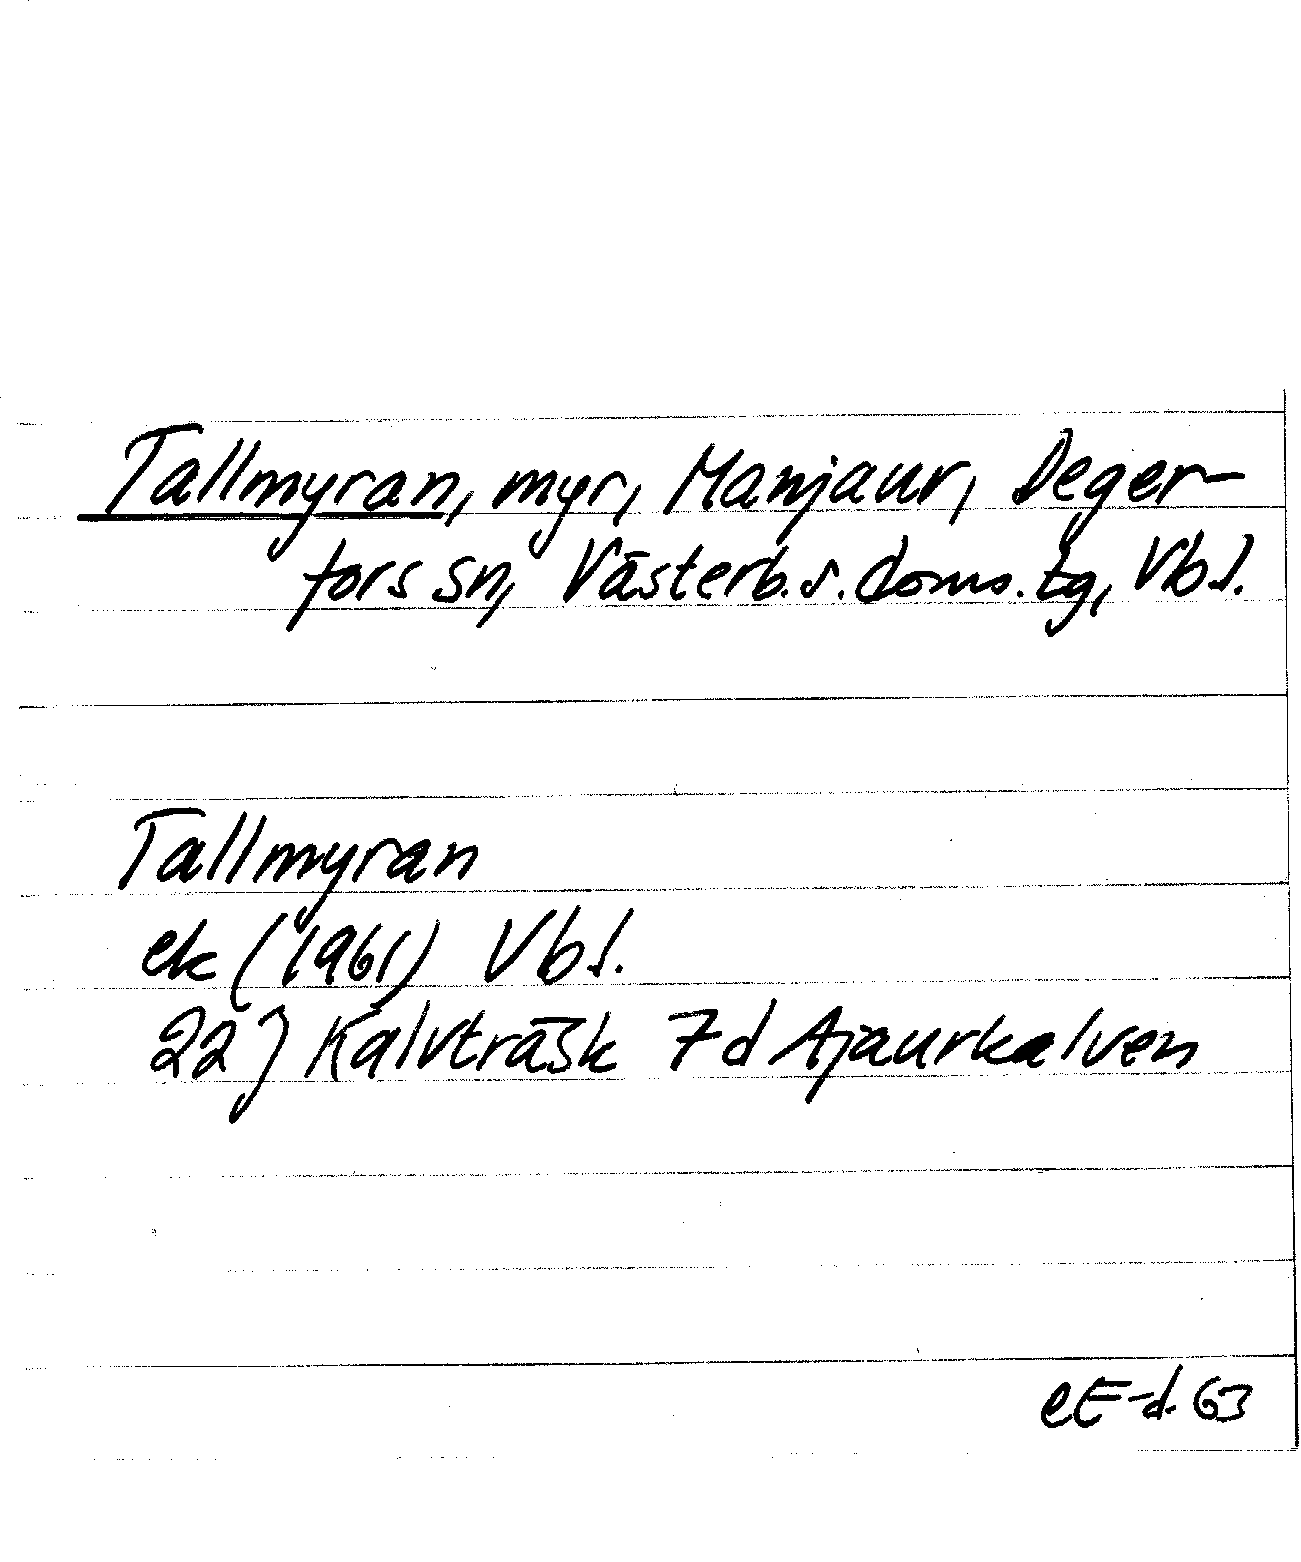 Tallmyran, myr, Manjaur, Deger-
fors sn, Västerb.s.doms.tg, Vbl.
Tallmyran
ek (1961) Vbl.
22J Kalvträsk 7d Ajaurkalven
eE-d 63